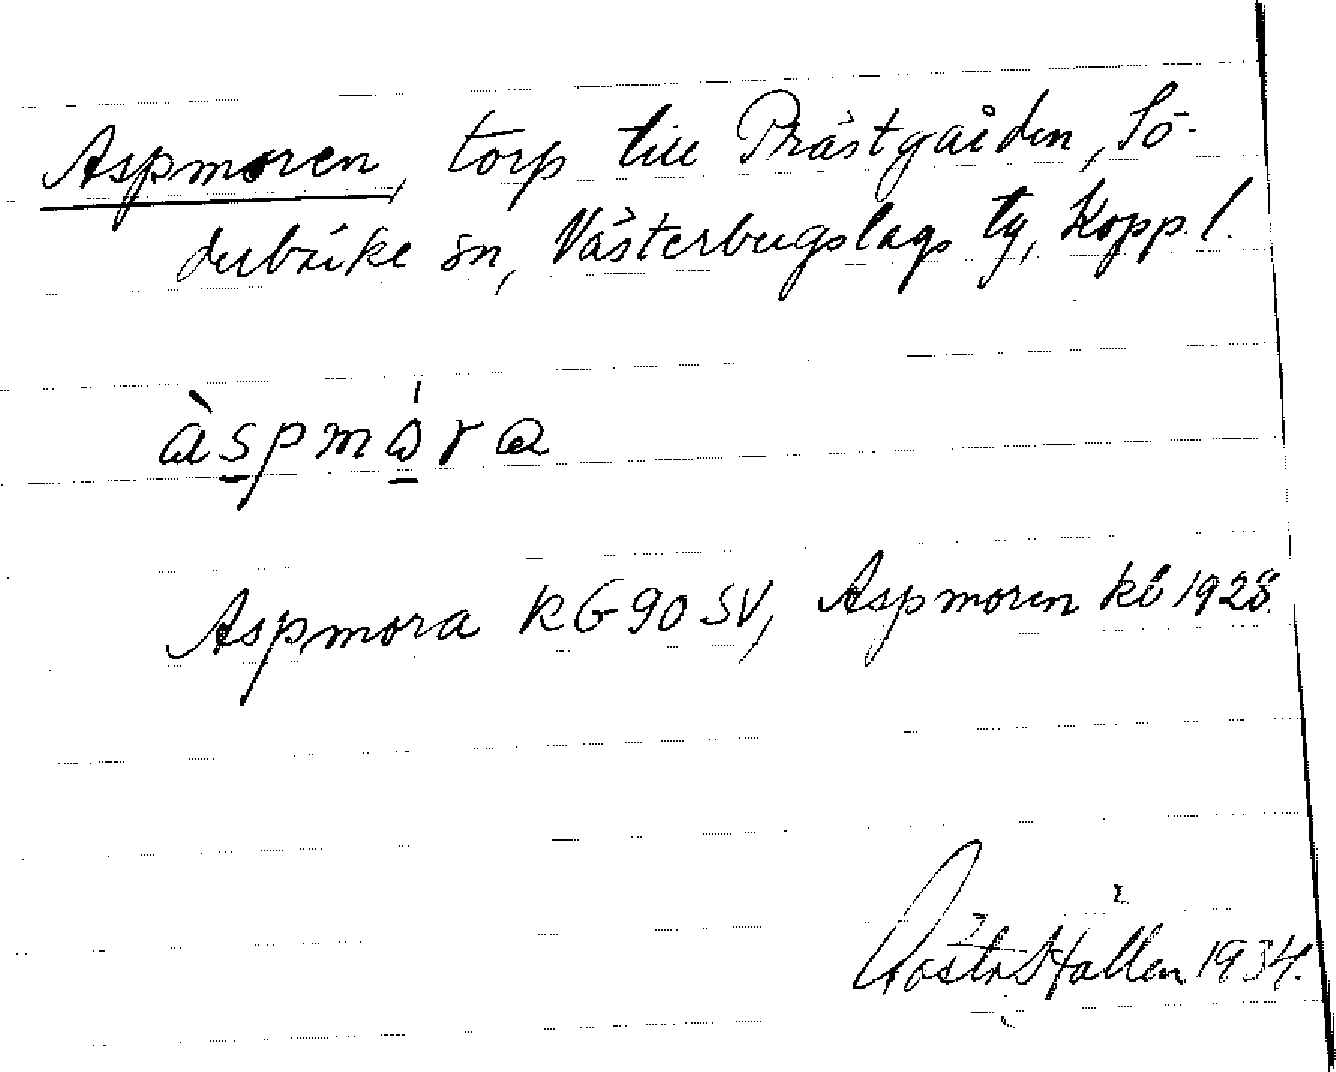 Aspmoren, torp till Prästgården, Sö-
derbärke sn, Västerbergslags tg, Kopp. l.
àspmåra
Aspmora KG 90 SV, Aspmoren kb 1928.
Gösta Hallén 1934.